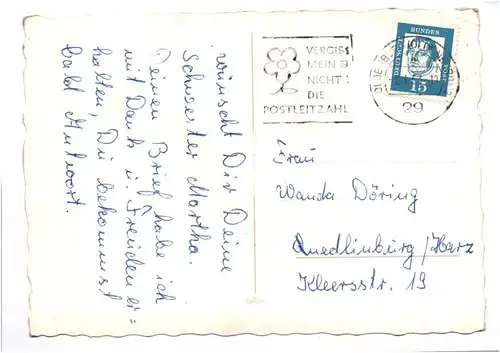 wünscht Dir Deine
Schwester Martha.
Deinen Brief habe ich
mit Dank u. Freuden er=
halten, Du bekommst
bald Antwort.
VERGISS
MEIN
NICHT
DIE
POSTLEITZAHL
DEUTSCHE
BUNDES
POST
15
29
Frau
Wanda Döring
Quedlinburg/Harz
Kleersstr. 19